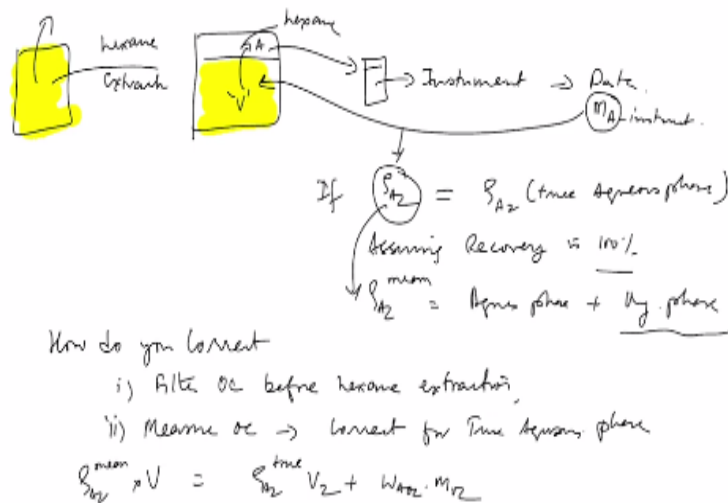 hexane
extract
hexane
A
'V'
→ Instrument → Data
m_A-instrument.
If ρ_A2 = ρ_A2 (true aqueous phase)
Assuming Recovery is 100%
ρ_A2^mean = Aqueous phase + Org. phase
How do you Correct
i) Filter OC before hexane extraction,
ii) Measure OC → Correct for True Aqueous phase
ρ_A2^mean × V = ρ_A2^true V_2 + W_AO2 · M_O2